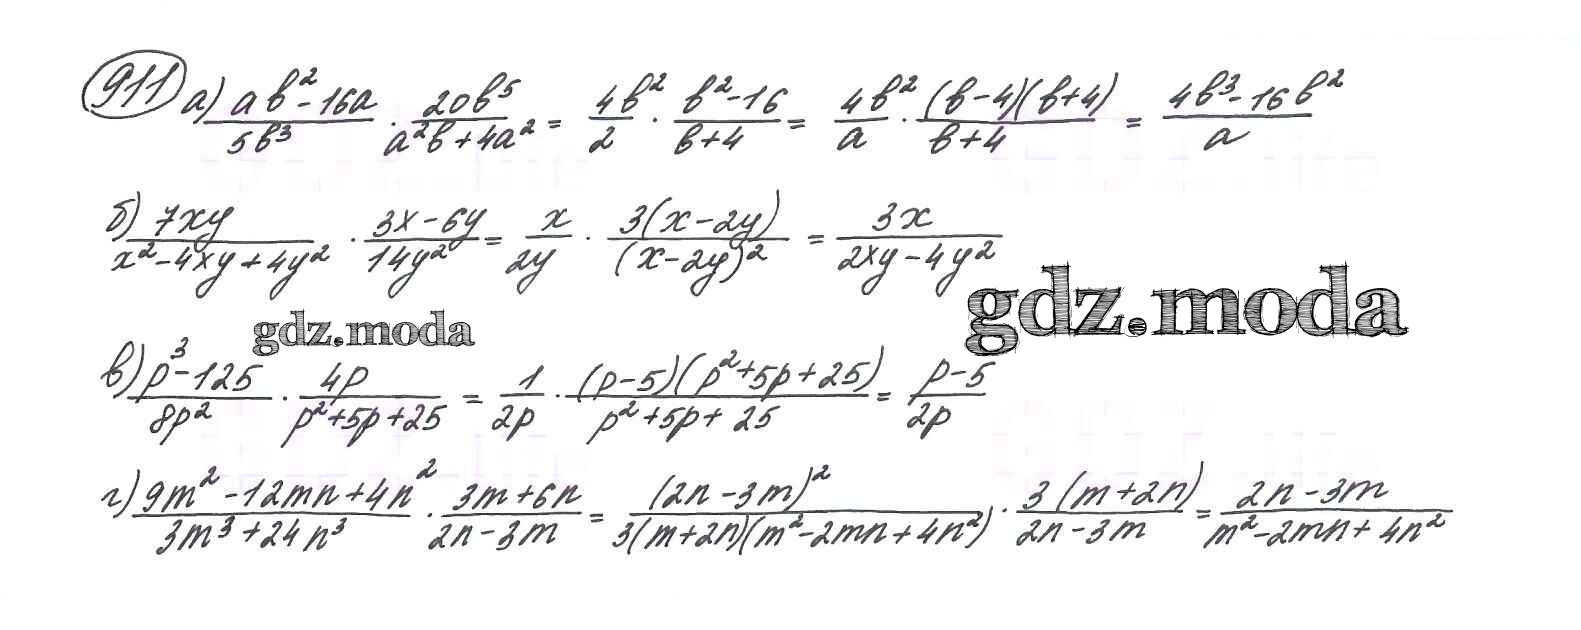 911 а) (ab²-16a)/(5b³) · (20b⁵)/(a²b+4a²) = (4b²)/(2) · (b²-16)/(b+4) = (4b²)/(a) · ((b-4)(b+4))/(b+4) = (4b³-16b²)/(a)
б) (7xy)/(x²-4xy+4y²) · (3x-6y)/(14y²) = (x)/(2y) · (3(x-2y))/((x-2y)²) = (3x)/(2xy-4y²)
gdz.moda
gdz.moda
в) (p³-125)/(8p²) · (4p)/(p²+5p+25) = (1)/(2p) · ((p-5)(p²+5p+25))/(p²+5p+25) = (p-5)/(2p)
г) (9m²-12mn+4n²)/(3m³+24n³) · (3m+6n)/(2n-3m) = ((2n-3m)²)/(3(m+2n)(m²-2mn+4n²)) · (3(m+2n))/(2n-3m) = (2n-3m)/(m²-2mn+4n²)